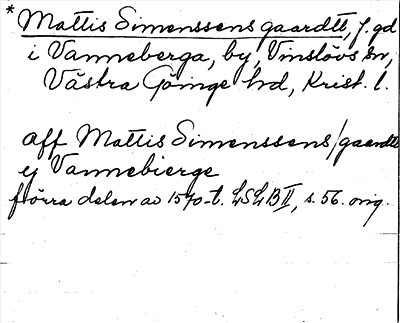 * Mattis Simenssens gaardtt, f. gd
i Vanneberga, by, Vinslövs sn,
Västra Göinge hd, Krist. l.
aff Mattis Simenssens/gaardtt
ej Vannebierge
förra delen av 1570-t. LSLB II, s. 56. orig.